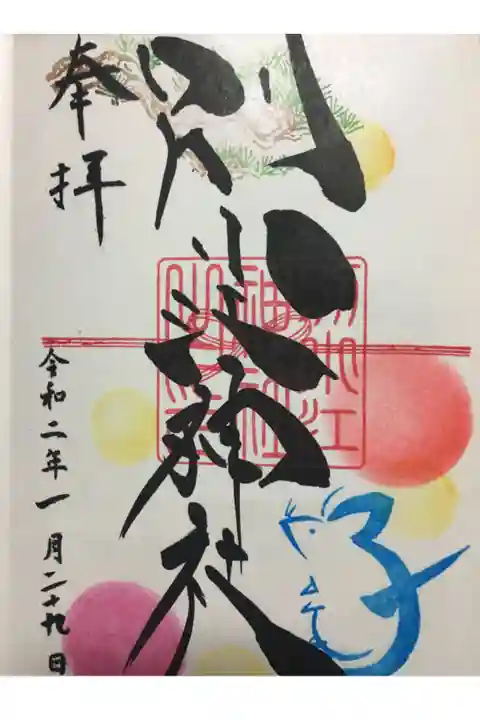 別小江神社
別小江
神社
子
奉拝
令和二年一月二十九日